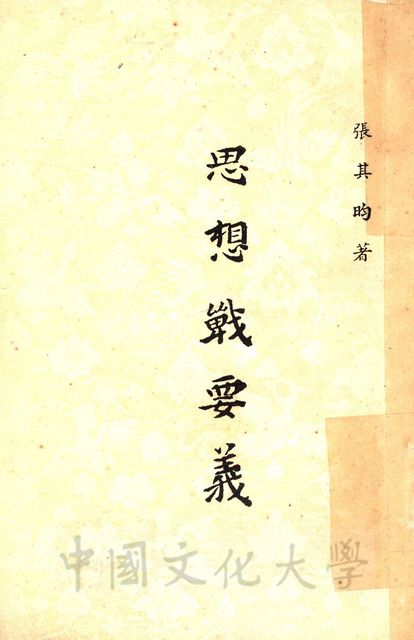 張其昀著
思想戰要義
中國文化大學